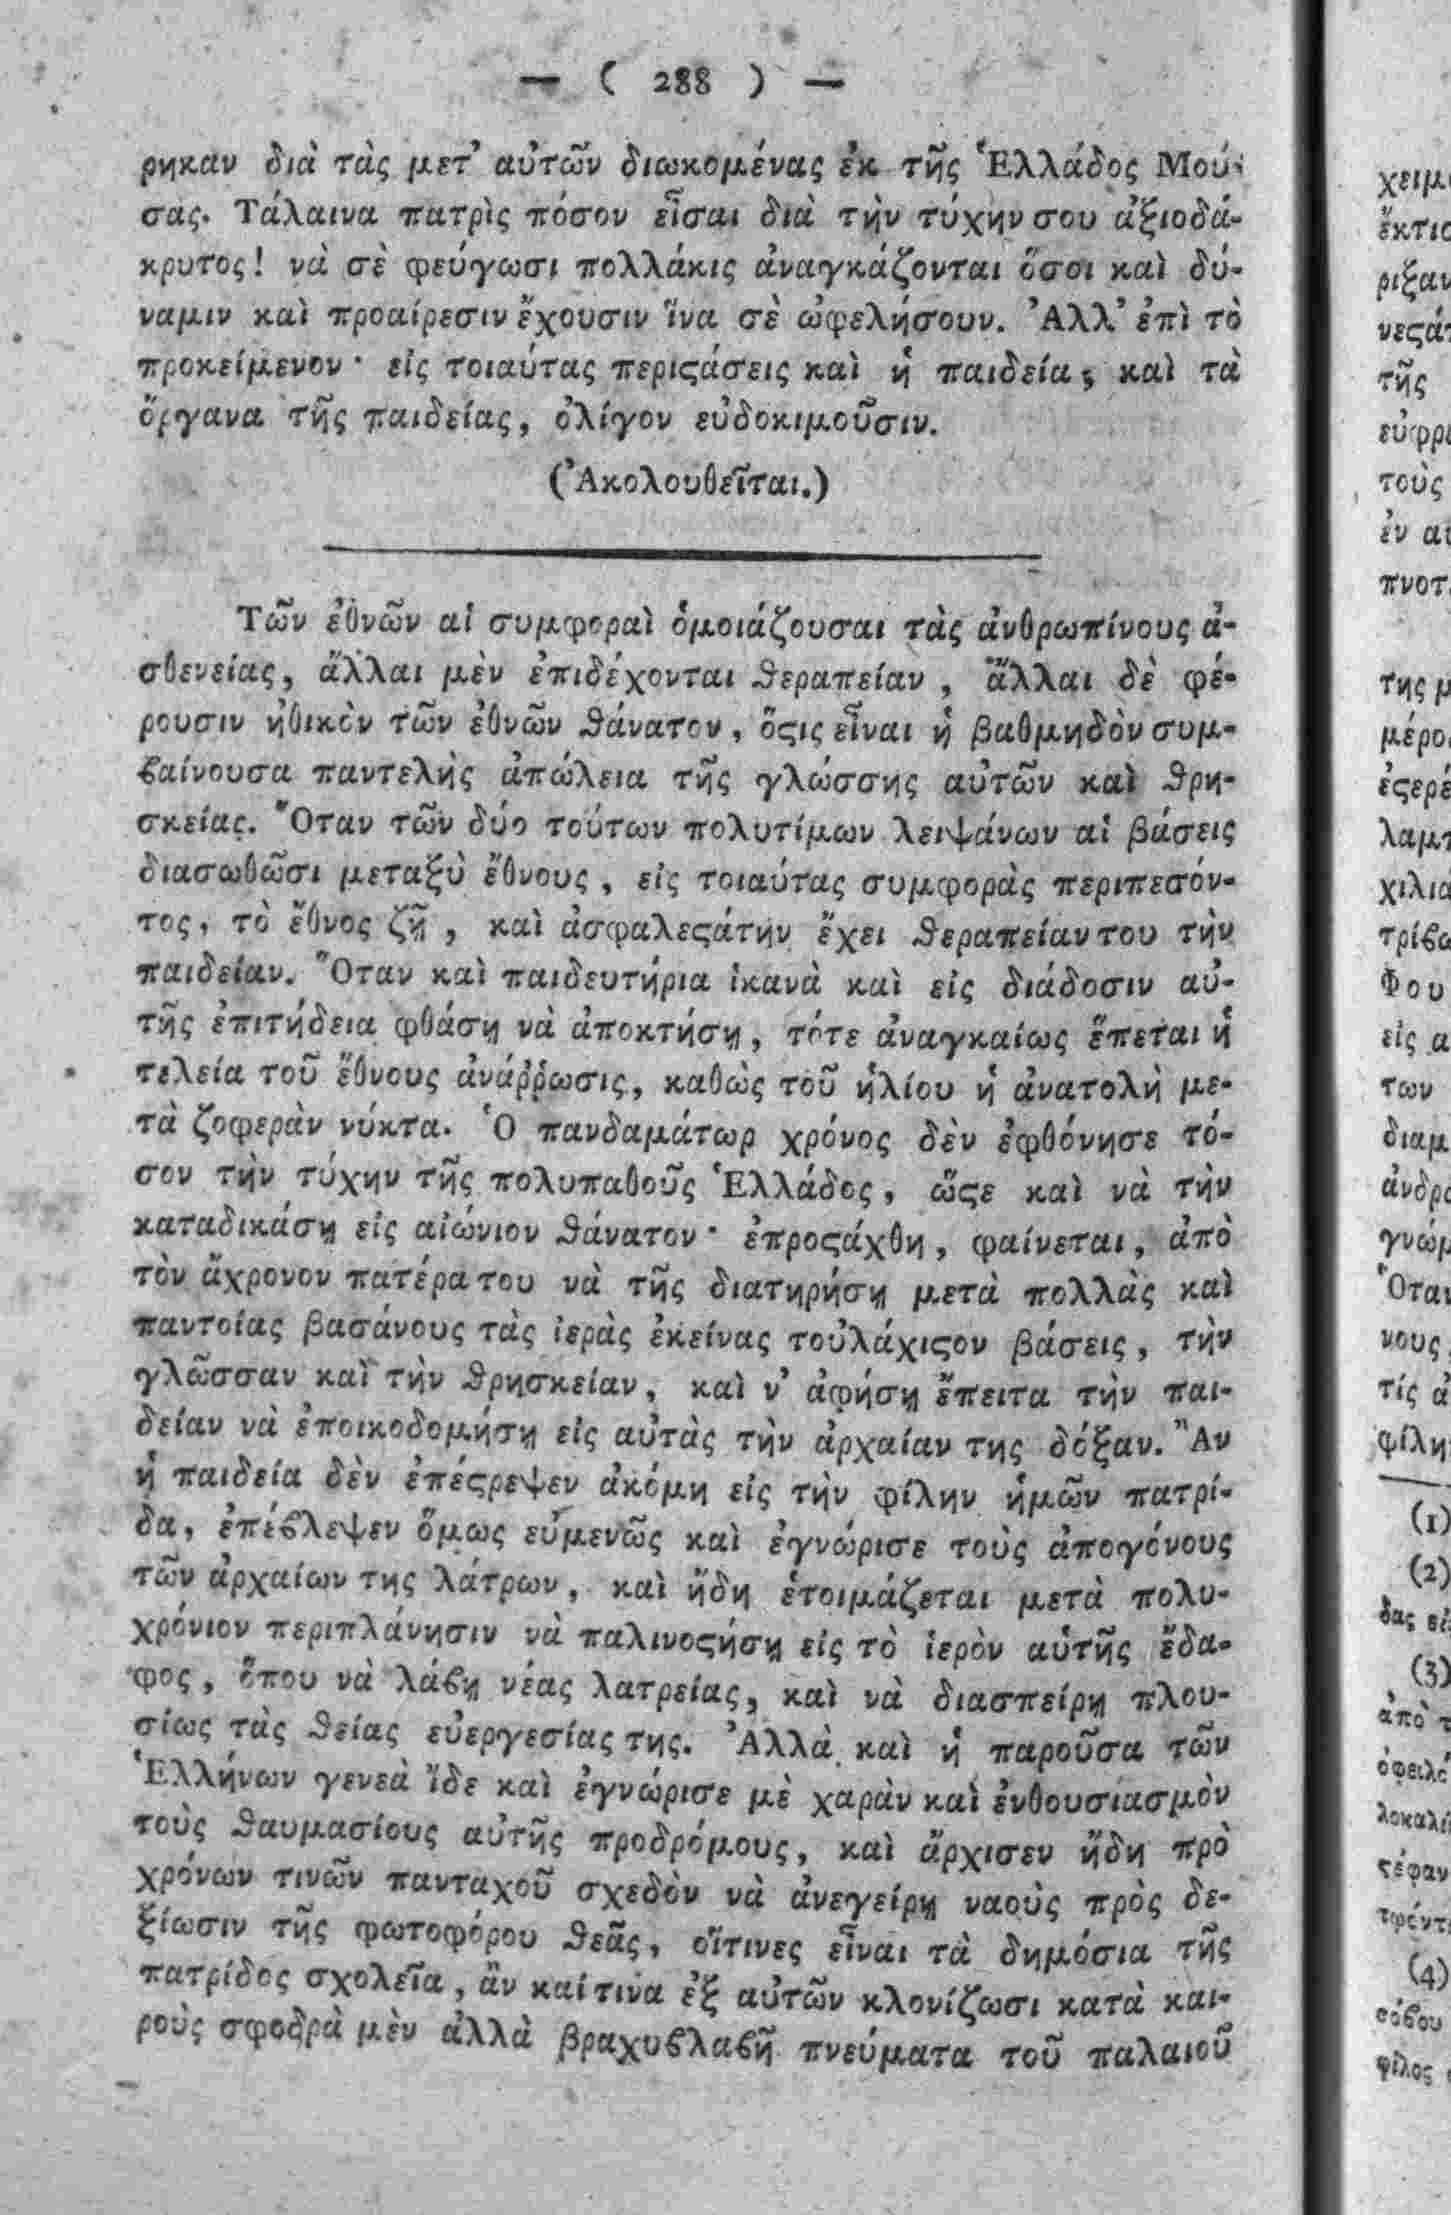 — ( 288 ) —
ρηκαν διὰ τὰς μετ' αὐτῶν διωκομένας ἐκ τῆς Ἑλλάδος Μού-
σας. Τάλαινα πατρὶς πόσον εἶσαι διὰ τὴν τύχην σου ἀξιοδά-
κρυτος! νὰ σὲ φεύγωσι πολλάκις ἀναγκάζονται ὅσοι καὶ δύ-
ναμιν καὶ προαίρεσιν ἔχουσιν ἵνα σὲ ὠφελήσουν. Ἀλλ' ἐπὶ τὸ
προκείμενον· εἰς τοιαύτας περιϛάσεις καὶ ἡ παιδεία, καὶ τὰ
ὄργανα τῆς παιδείας, ὀλίγον εὐδοκιμοῦσιν.
(Ἀκολουθεῖται.)
Τῶν ἐθνῶν αἱ συμφοραὶ ὁμοιάζουσαι τὰς ἀνθρωπίνους ἀ-
σθενείας, ἄλλαι μὲν ἐπιδέχονται ϑεραπείαν, ἄλλαι δὲ φέ-
ρουσιν ἠθικὸν τῶν ἐθνῶν ϑάνατον, ὅϛις εἶναι ἡ βαθμηδὸν συμ-
ϐαίνουσα παντελὴς ἀπώλεια τῆς γλώσσης αὐτῶν καὶ ϑρη-
σκείας. Ὅταν τῶν δύο τούτων πολυτίμων λειψάνων αἱ βάσεις
διασωθῶσι μεταξὺ ἔθνους, εἰς τοιαύτας συμφορὰς περιπεσόν-
τος, τὸ ἔθνος ζῇ, καὶ ἀσφαλεϛάτην ἔχει ϑεραπείαν του τὴν
παιδείαν. Ὅταν καὶ παιδευτήρια ἱκανὰ καὶ εἰς διάδοσιν αὐ-
τῆς ἐπιτήδεια φθάσῃ νὰ ἀποκτήσῃ, τότε ἀναγκαίως ἕπεται ἡ
τελεία τοῦ ἔθνους ἀνάῤῥωσις, καθὼς τοῦ ἡλίου ἡ ἀνατολὴ με-
τὰ ζοφερὰν νύκτα. Ὁ πανδαμάτωρ χρόνος δὲν ἐφθόνησε τό-
σον τὴν τύχην τῆς πολυπαθοῦς Ἑλλάδος, ὥϛε καὶ νὰ τὴν
καταδικάσῃ εἰς αἰώνιον ϑάνατον· ἐπροϛάχθη, φαίνεται, ἀπὸ
τὸν ἄχρονον πατέρα του νὰ τῆς διατηρήσῃ μετὰ πολλὰς καὶ
παντοίας βασάνους τὰς ἱερὰς ἐκείνας τοὐλάχιϛον βάσεις, τὴν
γλῶσσαν καὶ τὴν ϑρησκείαν, καὶ ν' ἀφήσῃ ἔπειτα τὴν παι-
δείαν νὰ ἐποικοδομήσῃ εἰς αὐτὰς τὴν ἀρχαίαν της δόξαν. Ἂν
ἡ παιδεία δὲν ἐπέϛρεψεν ἀκόμη εἰς τὴν φίλην ἡμῶν πατρί-
δα, ἐπέϐλεψεν ὅμως εὐμενῶς καὶ ἐγνώρισε τοὺς ἀπογόνους
τῶν ἀρχαίων της λάτρων, καὶ ἤδη ἑτοιμάζεται μετὰ πολυ-
χρόνιον περιπλάνησιν νὰ παλινοϛήσῃ εἰς τὸ ἱερὸν αὑτῆς ἔδα-
φος, ὅπου νὰ λάϐῃ νέας λατρείας, καὶ νὰ διασπείρῃ πλου-
σίως τὰς ϑείας εὐεργεσίας της. Ἀλλὰ καὶ ἡ παροῦσα τῶν
Ἑλλήνων γενεὰ ἴδε καὶ ἐγνώρισε μὲ χαρὰν καὶ ἐνθουσιασμὸν
τοὺς ϑαυμασίους αὐτῆς προδρόμους, καὶ ἄρχισεν ἤδη πρὸ
χρόνων τινῶν πανταχοῦ σχεδὸν νὰ ἀνεγείρῃ ναοὺς πρὸς δε-
ξίωσιν τῆς φωτοφόρου ϑεᾶς, οἵτινες εἶναι τὰ δημόσια τῆς
πατρίδος σχολεῖα, ἂν καί τινα ἐξ αὐτῶν κλονίζωσι κατὰ και-
ροὺς σφοδρὰ μὲν ἀλλὰ βραχυϐλαϐῆ πνεύματα τοῦ παλαιοῦ